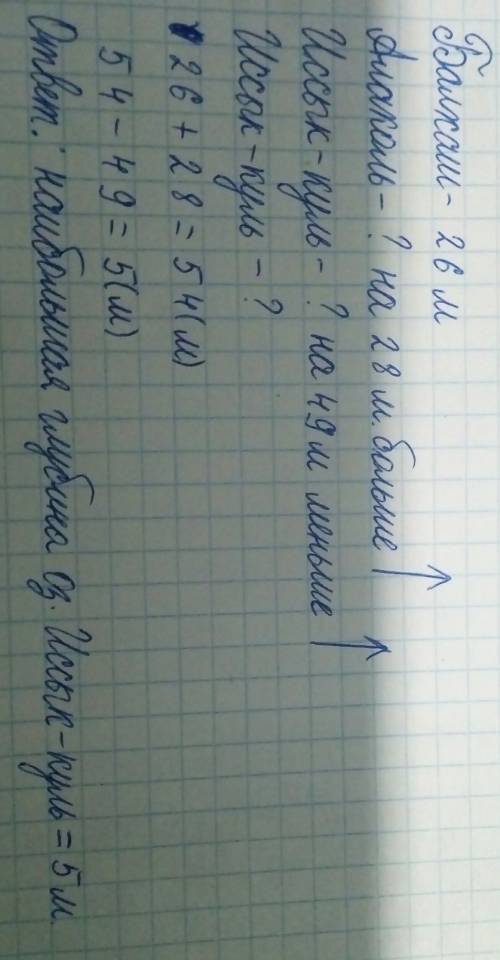 Балхаш - 26 м
Алаколь - ? на 28 м. больше
Иссык-куль - ? на 49 м меньше
Иссык-куль - ?
26 + 28 = 54 (м)
54 - 49 = 5 (м)
Ответ: наибольшая глубина оз. Иссык-куль = 5 м.